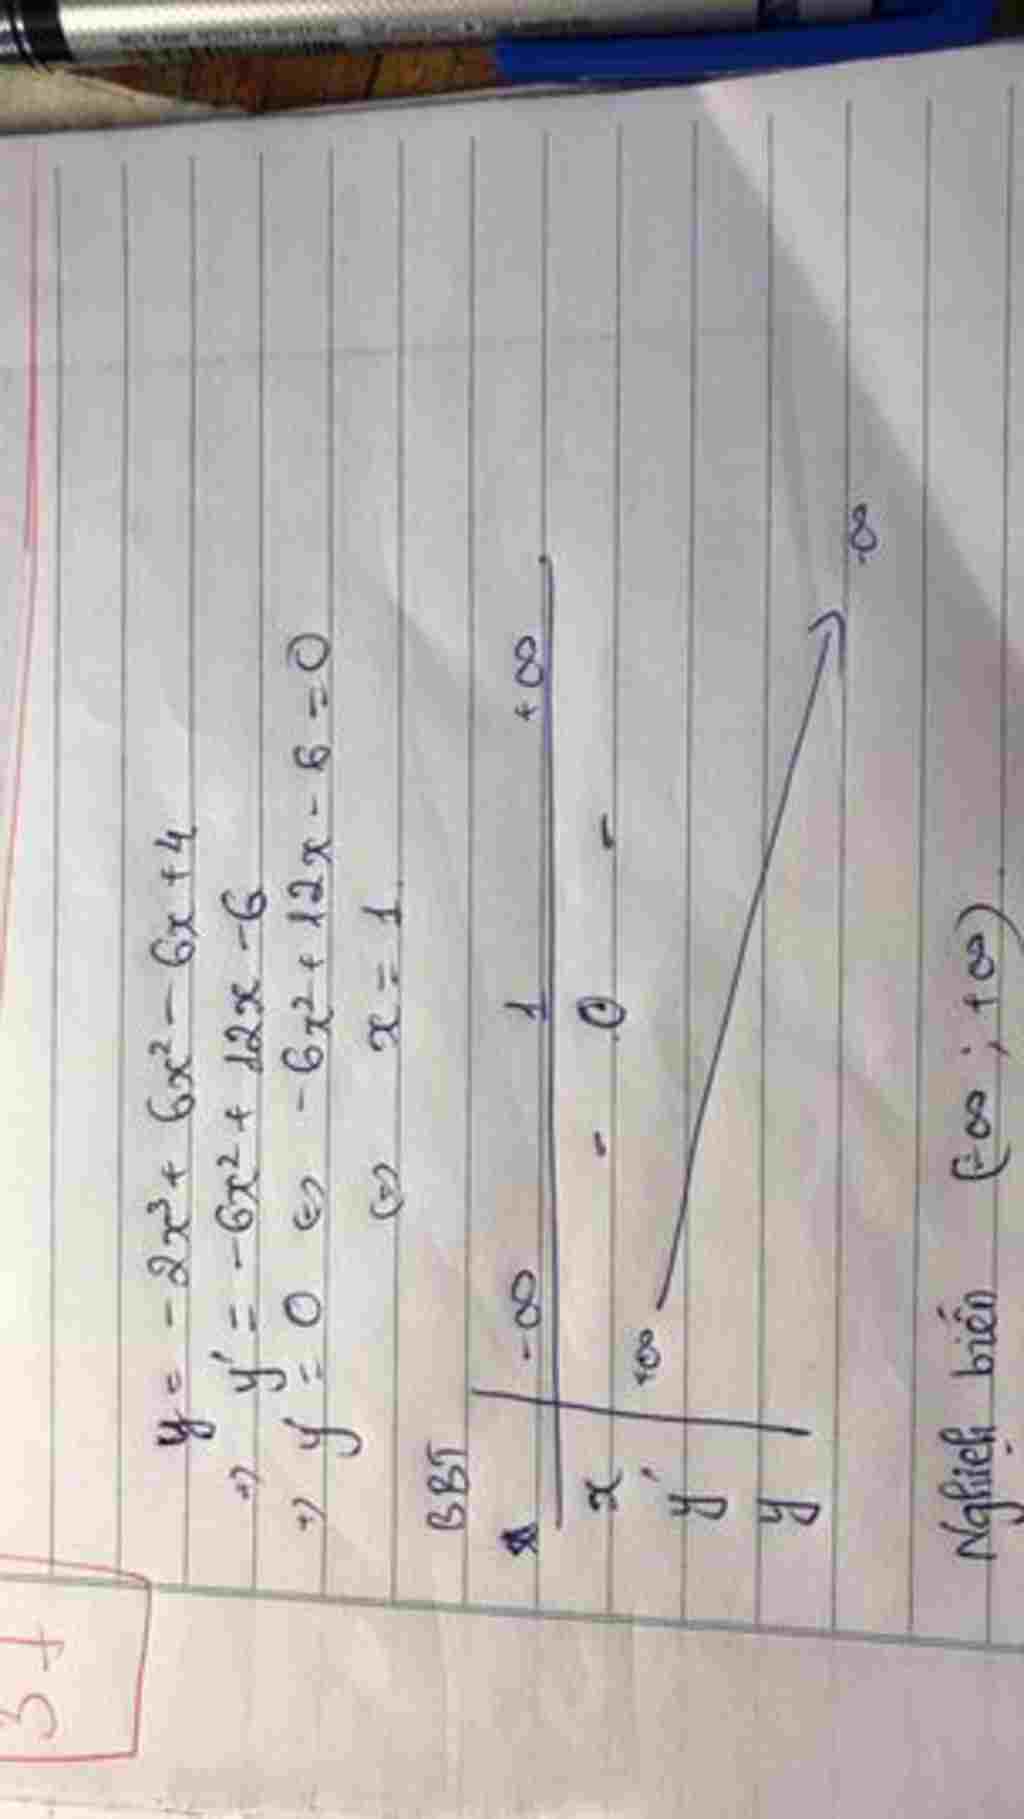 3 +
y = -2x³ + 6x² - 6x + 4
=> y' = -6x² + 12x - 6
=> y' = 0 <=> -6x² + 12x - 6 = 0
<=> x = 1
BBT
-∞ 1 +∞
x - 0 -
y' +∞
y -∞
Nghịch biến (-∞ ; +∞)